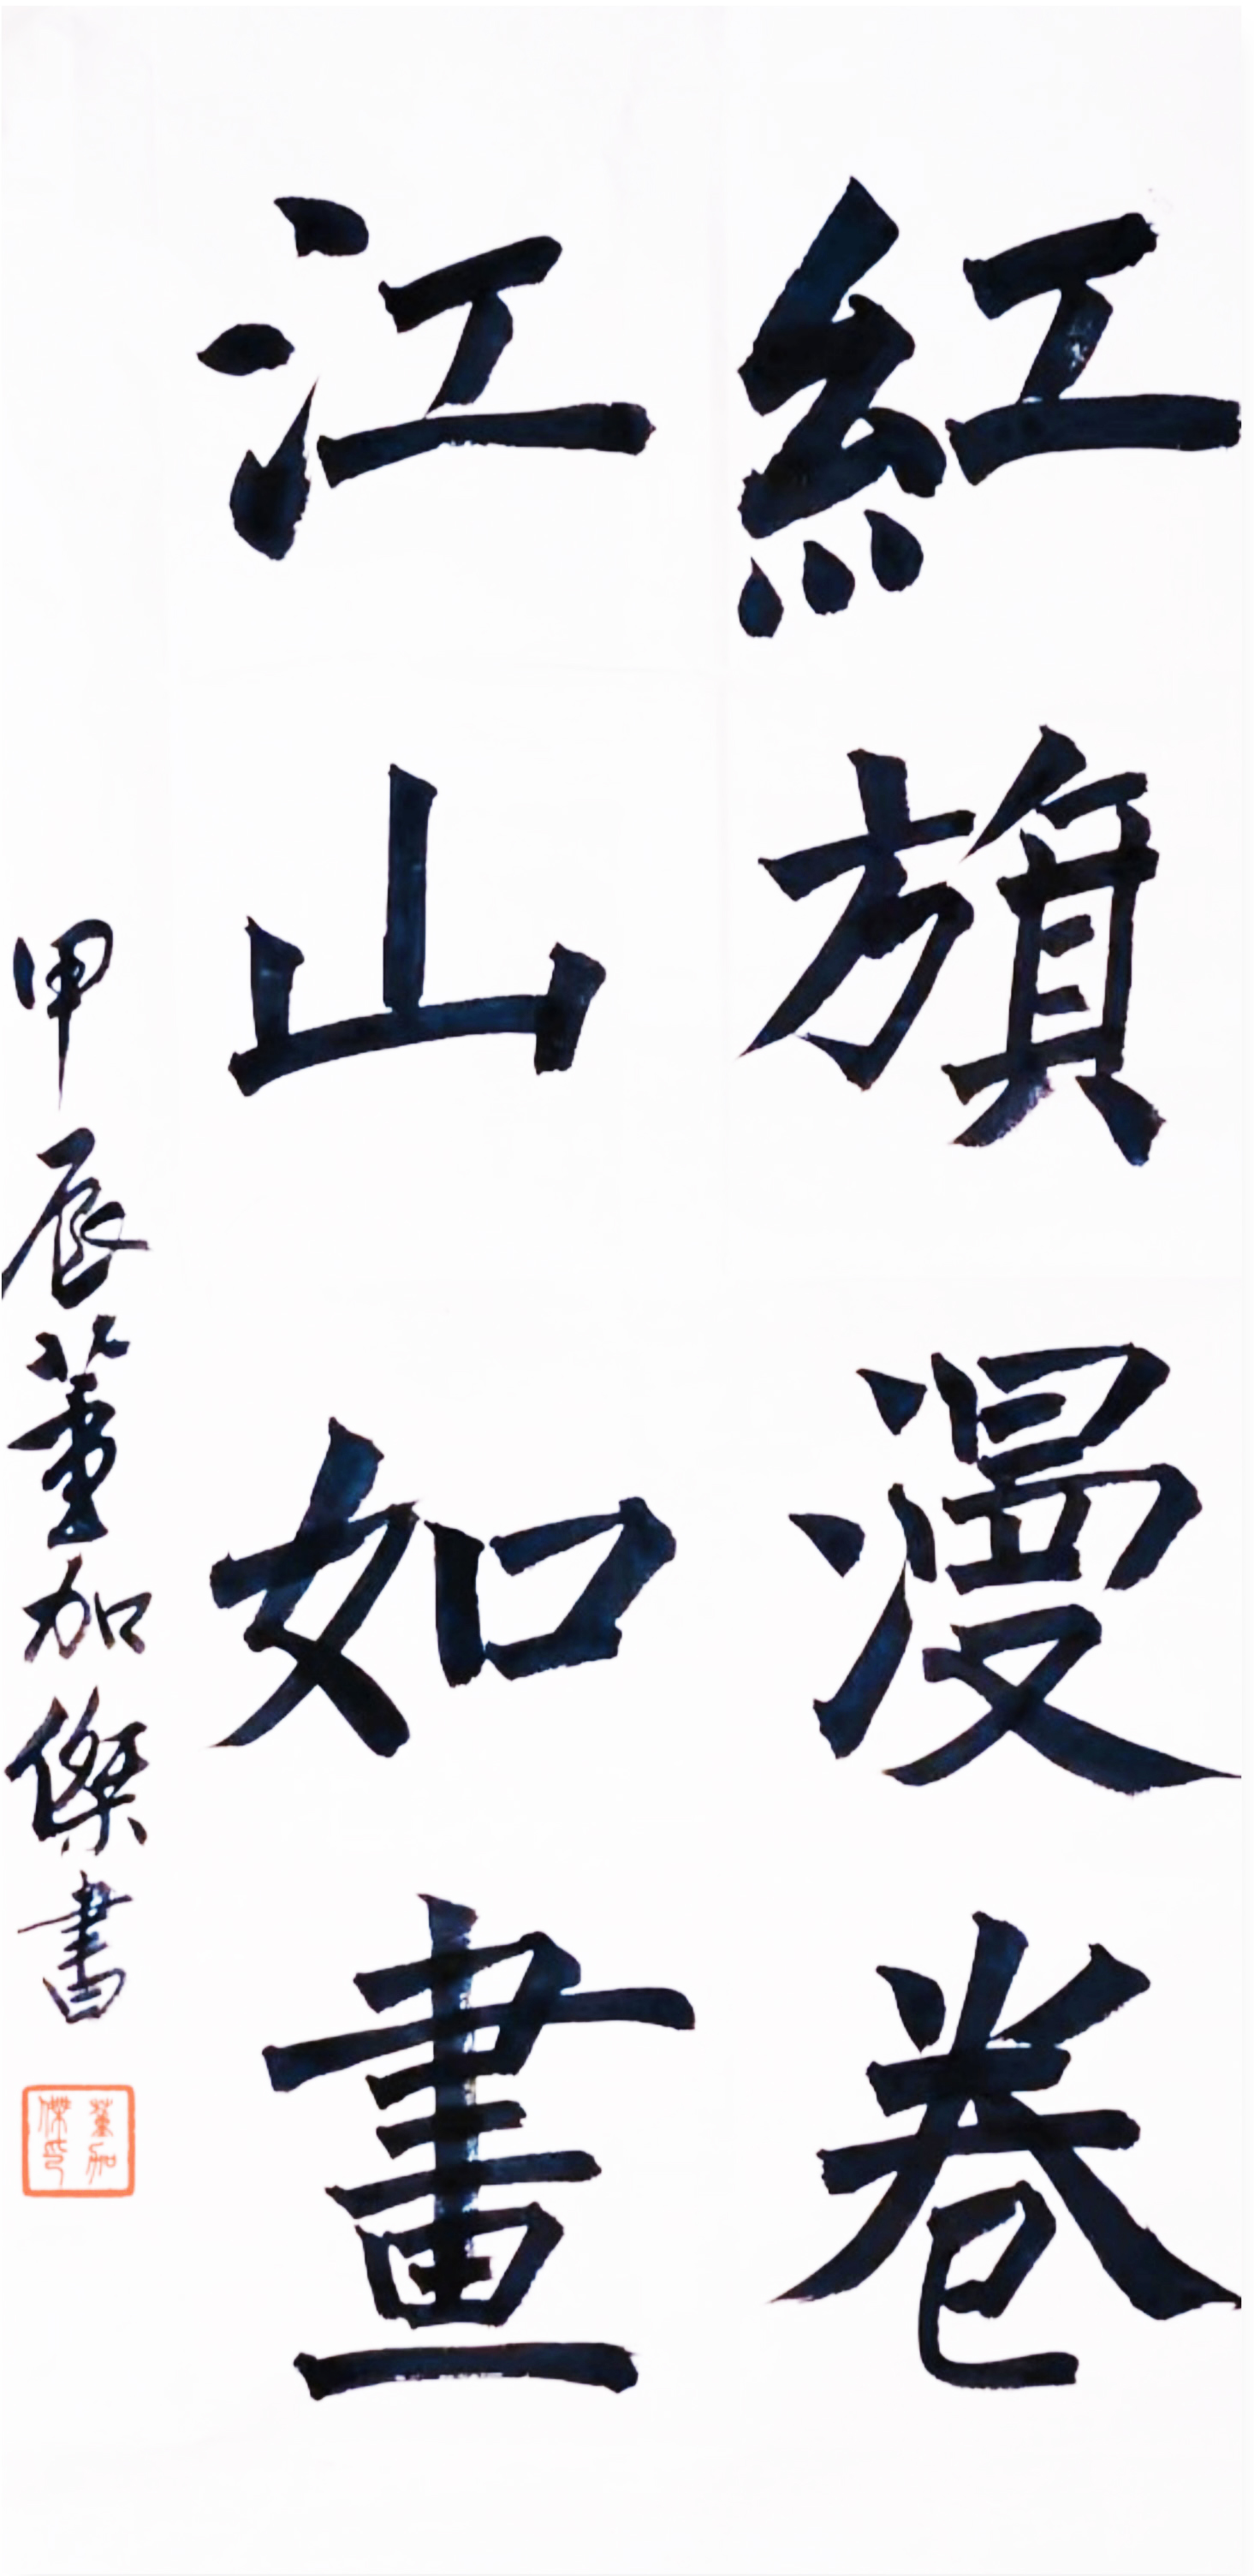 紅旗漫卷
江山如畫
甲辰董加傑書
董加
傑印